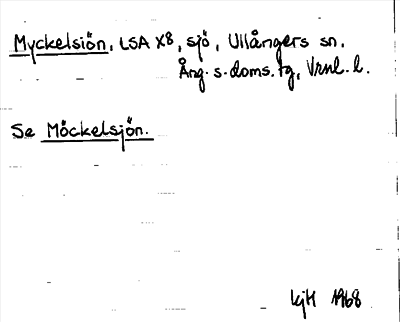 Myckelsiön, LSA X8, sjö, Ullångers sn.
Ång. s. doms. tg, Vrnl. l.
Se Möckelsjön.
kjH 1968